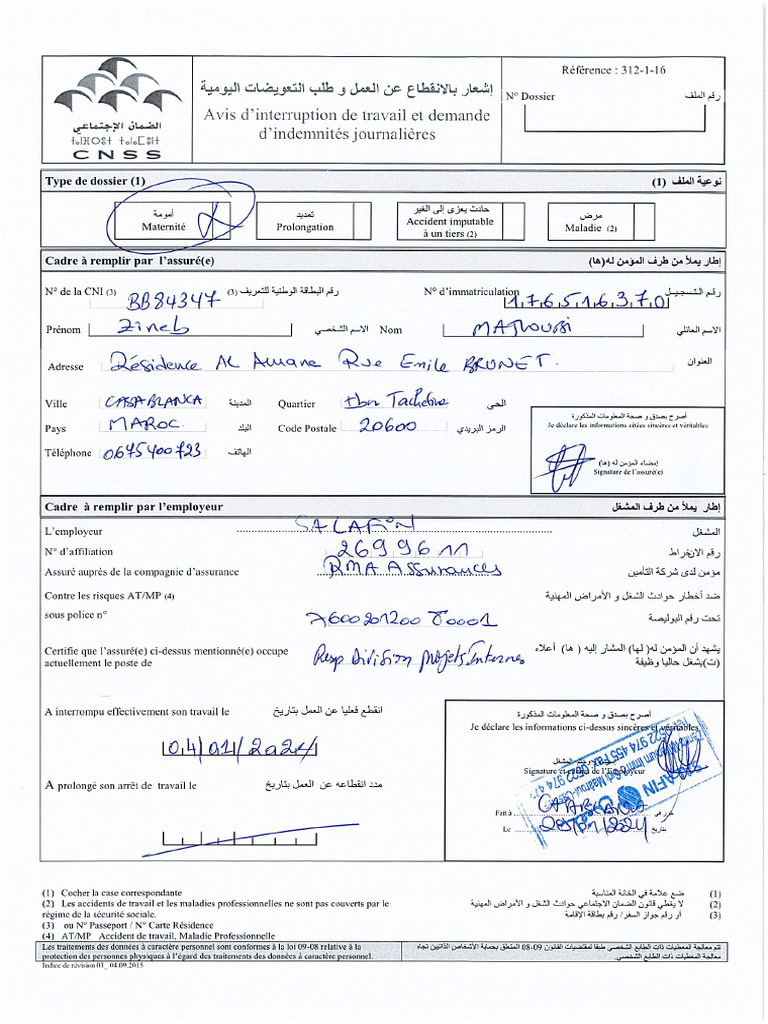 الضمان الإجتماعي
CNSS
إشعار بالانقطاع عن العمل و طلب التعويضات اليومية
Avis d'interruption de travail et demande
d'indemnités journalières
Référence : 312-1-16
N° Dossier رقم الملف
Type de dossier (1) نوعية الملف (1)
أمومة Maternité X
تمديد Prolongation
حادث يعزى إلى الغير Accident imputable à un tiers (2)
مرض Maladie (2)
Cadre à remplir par l'assuré(e) إطار يملأ من طرف المؤمن له(ها)
N° de la CNI (3) BB84347 رقم البطاقة الوطنية للتعريف (3) N° d'immatriculation 176516370 رقم التسجيل
Prénom Zineb الاسم الشخصي Nom الاسم العائلي
Adresse Résidence Al Amane Rue Emile BRUNET. العنوان
Ville CASABLANCA المدينة Quartier الحي
Pays MAROC البلد Code Postale 20600 الرمز البريدي
Téléphone 0675400723 الهاتف
أصرح بصدق و صحة المعلومات المذكورة
Je déclare les informations citées sincères et véritables
إمضاء المؤمن له (ها)
Signature de l'assuré(e)
Cadre à remplir par l'employeur إطار يملأ من طرف المشغل
L'employeur SALAFIN المشغل
N° d'affiliation 2699611 رقم الانخراط
Assuré auprès de la compagnie d'assurance RMA Assurances مؤمن لدى شركة التأمين
Contre les risques AT/MP (4) ضد أخطار حوادث الشغل و الأمراض المهنية
sous police n° تحت رقم البوليصة
Certifie que l'assuré(e) ci-dessus mentionné(e) occupe يشهد أن المؤمن له( لها) المشار إليه ( ها) أعلاه
actuellement le poste de Resp Division projets Internes (ت)يشغل حاليا وظيفة
A interrompu effectivement son travail le انقطع فعليا عن العمل بتاريخ
04/01/2024
A prolongé son arrêt de travail le مدد انقطاعه عن العمل بتاريخ
أصرح بصدق و صحة المعلومات المذكورة
Je déclare les informations ci-dessus sincères et véritables
Signature et cachet de l'Employeur
Fait à CASABLANCA حرر في
Le بتاريخ
(1) Cocher la case correspondante ضع علامة في الخانة المناسبة (1)
(2) Les accidents de travail et les maladies professionnelles ne sont pas couverts par le لا يغطي قانون الضمان الاجتماعي حوادث الشغل و الأمراض المهنية (2)
régime de la sécurité sociale. أو رقم جواز السفر/ رقم بطاقة الإقامة (3)
(3) ou N° Passeport / N° Carte Résidence
(4) AT/MP Accident de travail, Maladie Professionnelle
Les traitements des données à caractère personnel sont conformes à la loi 09-08 relative à la
protection des personnes physiques à l'égard des traitements des données à caractère personnel.
تتم معالجة المعطيات ذات الطابع الشخصي طبقا لمقتضيات القانون 08-09 المتعلق بحماية الأشخاص الذاتيين تجاه
معالجة المعطيات ذات الطابع الشخصي.
Indice de révision 03_ 04.09.2015